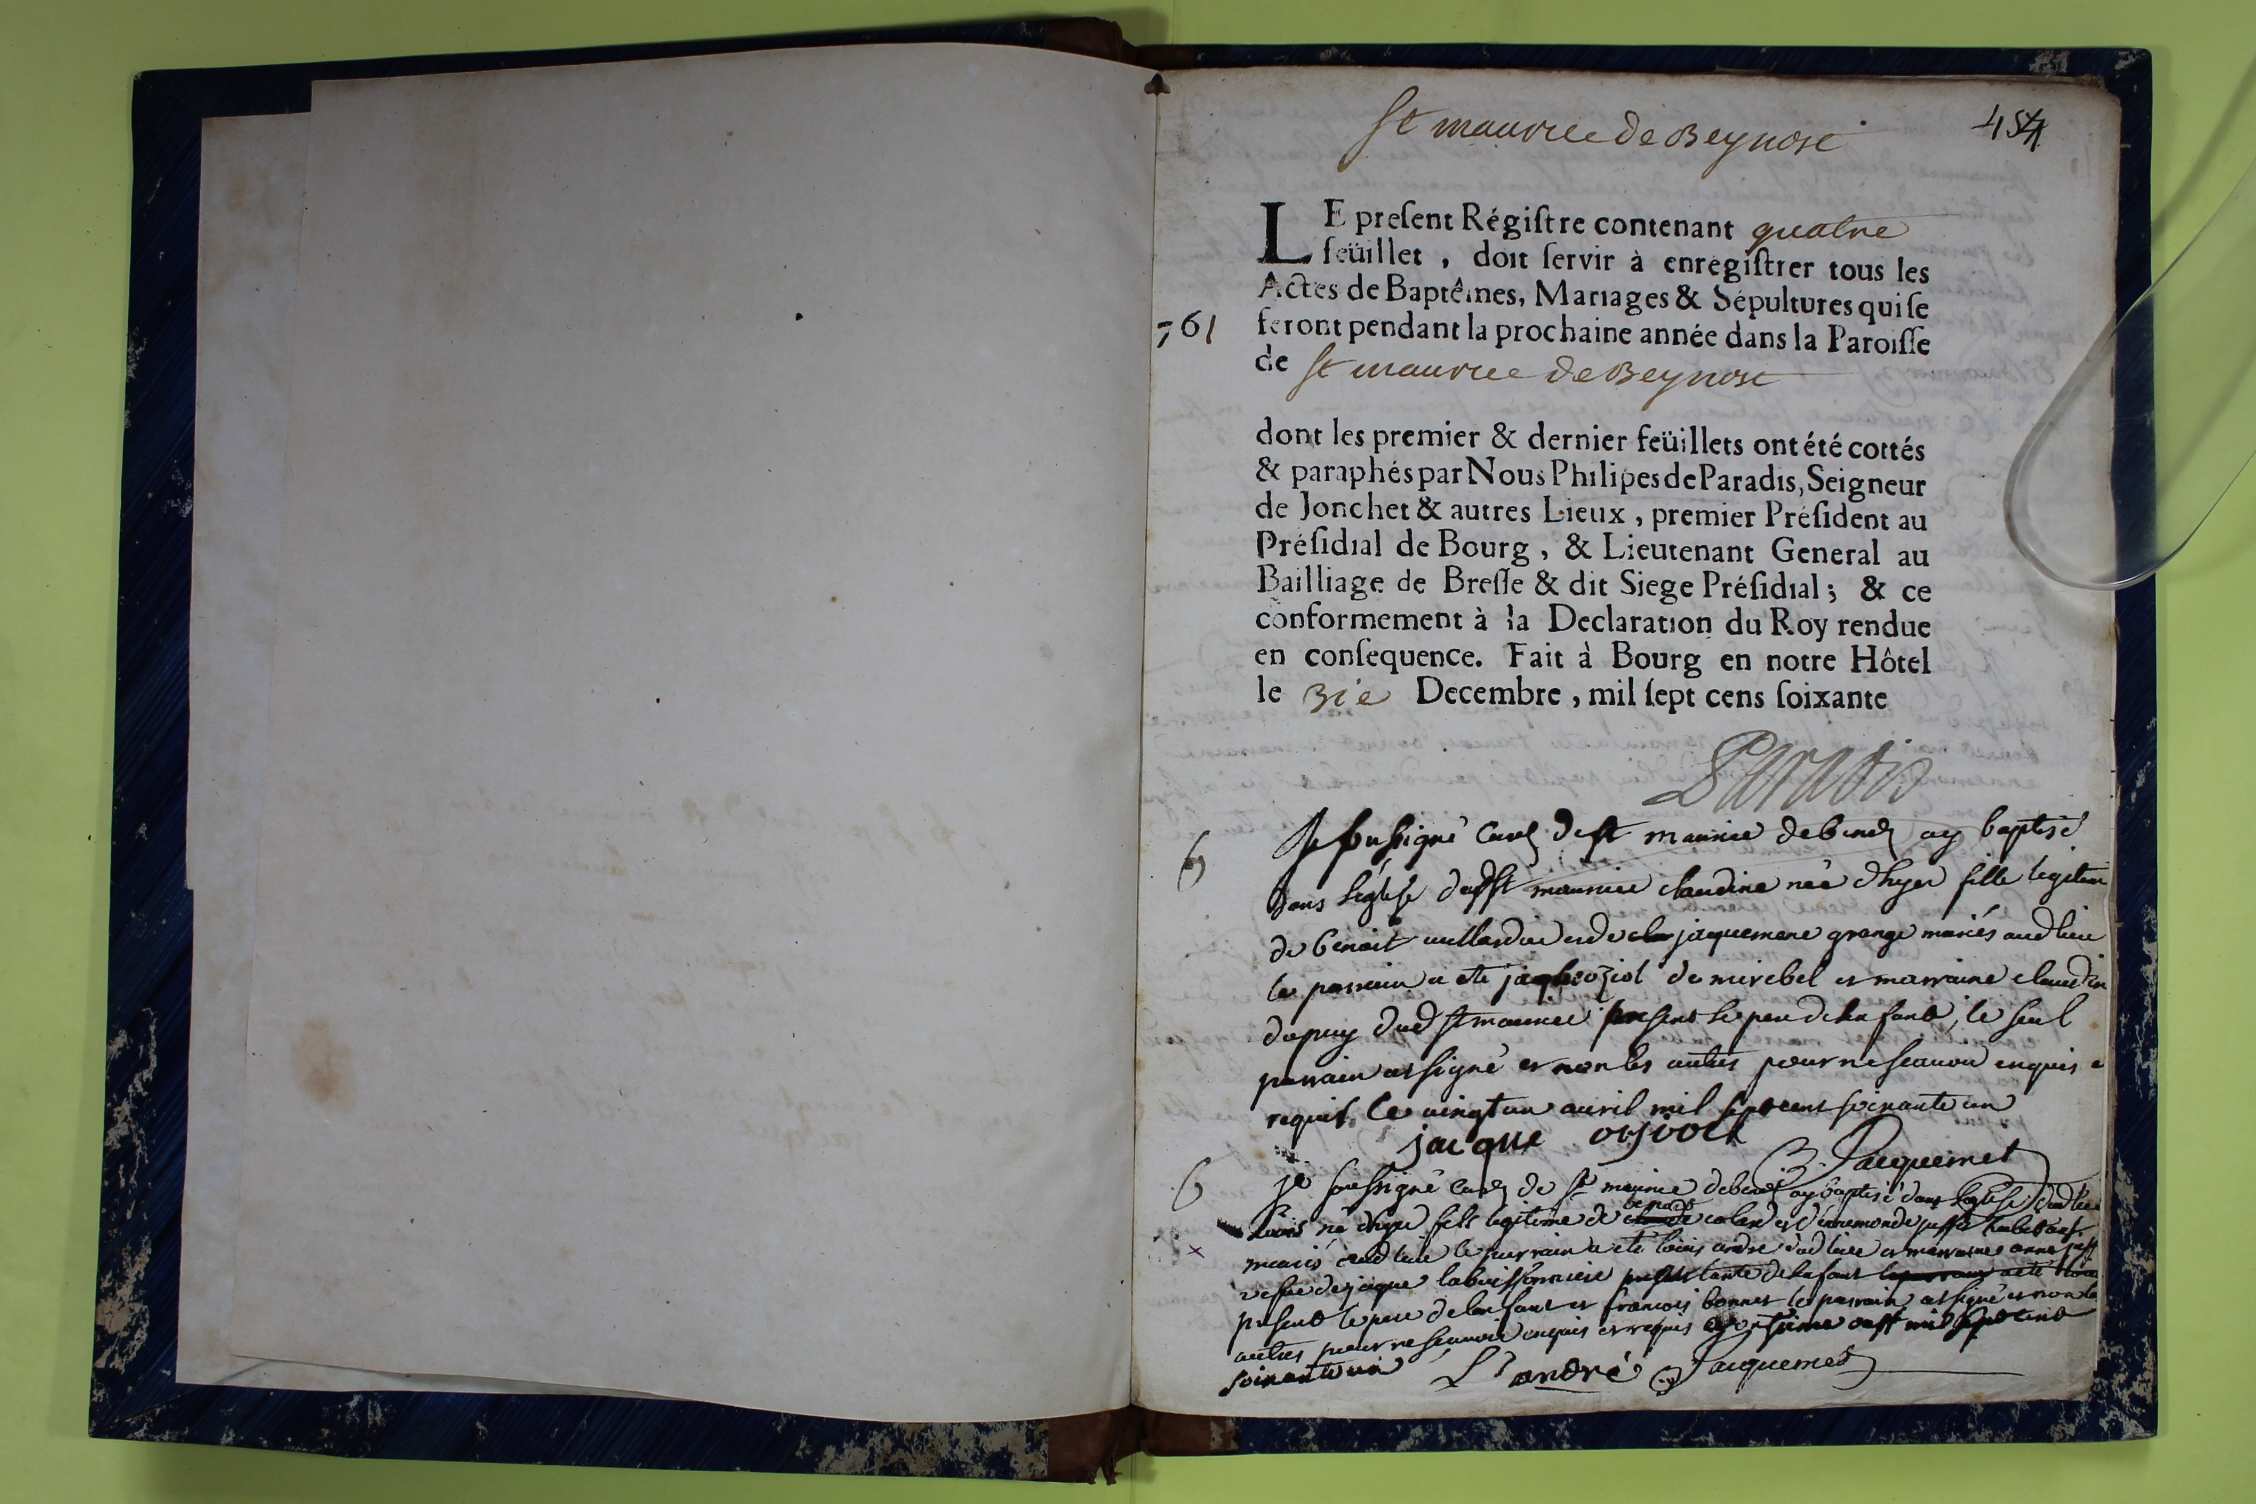 St maurice de Beynost
454
LE preſent Régiſtre contenant quatre
feüillet, doit ſervir à enregiſtrer tous les
Actes de Baptêmes, Mariages & Sépultures qui ſe
761 feront pendant la prochaine année dans la Paroiſſe
de St maurice de Beynost
dont les premier & dernier feüillets ont été cottés
& paraphés par Nous Philipes de Paradis, Seigneur
de Jonchet & autres Lieux, premier Préſident au
Préſidial de Bourg, & Lieutenant General au
Bailliage de Breſſe & dit Siege Préſidial; & ce
conformement à la Declaration du Roy rendue
en conſequence. Fait à Bourg en notre Hôtel
le 31e Decembre, mil ſept cens ſoixante
Paradis
Je soussigné curé de st maurice de ay baptisé
dans l'église dud st maurice claudine née d'hyer fille legitime
de benoit et de jaquemene grange mariés aud lieu
le parrain a ete de mirebel et marraine claudine
dupuy dud st maurice present le pere de lenfant, le seul
parrain at signé et non les autres pour ne scauoir enquis e
requis le vingt un auril mil sept cent soixante un
jacque
B Jacquemet
je soussigné curé de st maurice de ay baptisé dans leglise dud lieu
louis né d'hyer fils legitime de et
mariés aud lieu le parrain a eté louis andre dud lieu et marraine anne
de jaque tante de lenfant
present le pere de lenfant et francois bonnet le parrain at signé et non les
autres pour ne scauoir enquis et requis aoust mil sept cent
soixante un
Ls andré B Jacquemet